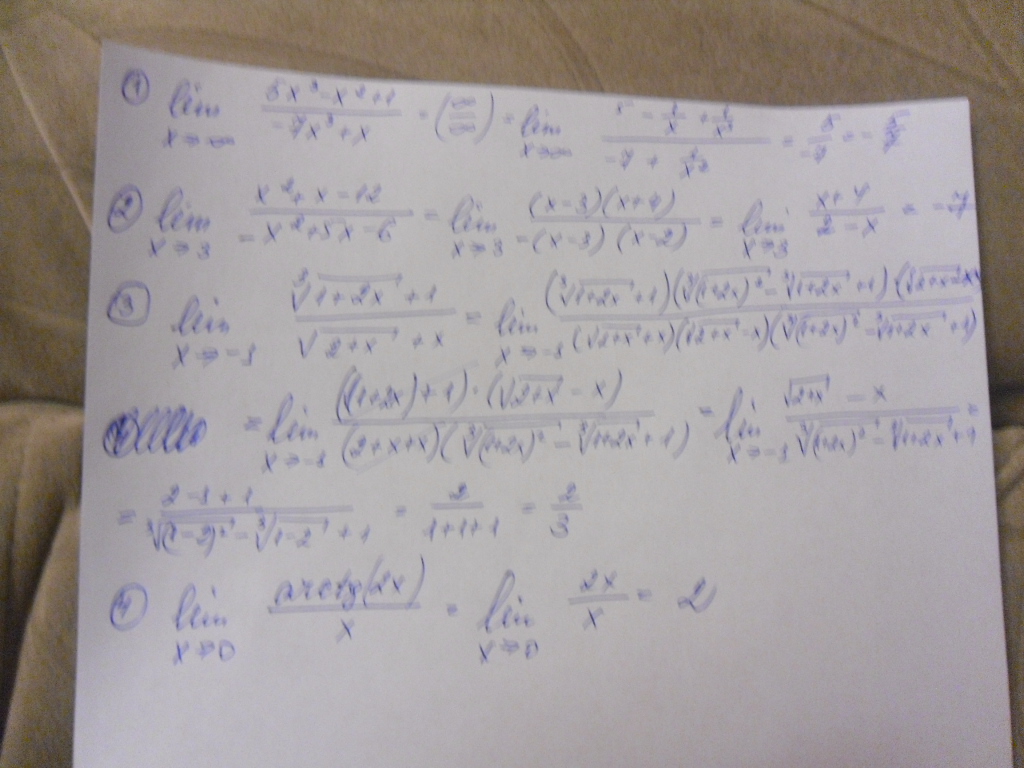 ① lim x→∞ (5x³-x²+1)/(-7x³+x) = (∞/∞) = lim x→∞ (5 - 1/x + 1/x³)/(-7 + 1/x²) = 5/-7 = -5/7
② lim x→3 (x²+x-12)/(-x²+5x-6) = lim x→3 (x-3)(x+4)/(-(x-3)(x-2)) = lim x→3 (x+4)/(2-x) = -7
③ lim x→-1 (∛(1+2x) +1)/(√(2+x) +x) = lim x→-1 (∛(1+2x) +1)(∛(1+2x)² - ∛(1+2x) +1)(√(2+x)-x)/(√(2+x) +x)(√(2+x) -x)(∛(1+2x)² - ∛(1+2x) +1)
= lim x→-1 ((1+2x)+1)·(√(2+x) -x)/(2+x+x)(∛(1+2x)² - ∛(1+2x) +1) = lim x→-1 (√(2+x) -x)/(∛(1+2x)² - ∛(1+2x) +1) =
= (2-1+1)/(∛(1-2)² - ∛(1-2) +1) = 2/(1+1+1) = 2/3
④ lim x→0 arctg(2x)/x = lim x→0 2x/x = 2